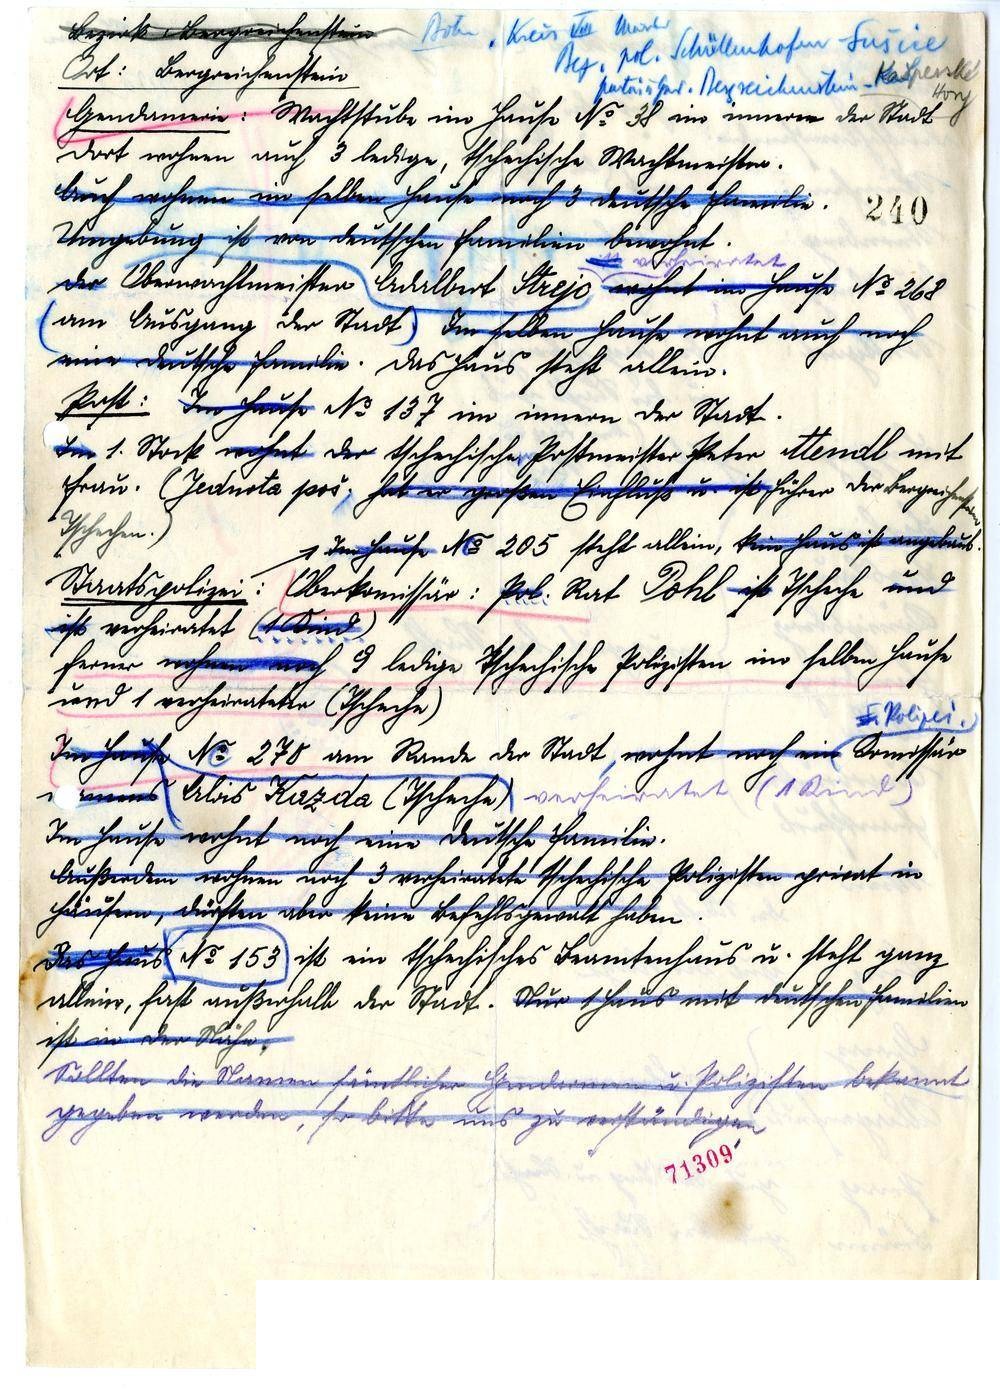 Bezirk: Bergreichenstein
Böhm. Kreis VIII
Ort: Bergreichenstein
Bez. pol. Schüttenhofen - Sušice
Bergreichenstein - Kašperské Hory
Gendamerie: Wachtstube im Hause No 38 im inneren der Stadt
dort wohnen auch 3 ledige, tschechische Wachtmeister.
Auch wohnen im selben Hause noch 3 deutsche Familie.
240
Umgebung ist von deutschen Familien bewohnt.
verheiratet
Der Oberwachtmeister Adalbert Strejc wohnt im Hause No 268
(am Ausgang der Stadt) Im selben Hause wohnt auch noch
eine deutsche Familie. Das Haus steht allein.
Post: Im Hause No 137 im innern der Stadt.
Im 1. Stock wohnt der tschechische Postmeister Peter Mendl mit
Frau. (Jednota poš. hat er großen Einfluß u. ist Führer der Bergreichenstein
Tschechen.)
Im Hause No 205 steht allein, kein Haus ist angebaut.
Staatspolizei: Oberkomissär: Pol. Rat Pohl ist Tscheche und
ist verheiratet (1 Kind)
ferner wohnen noch 9 ledige Tschechische Polizisten im selben Hause
und 1 verheirateter (Tscheche)
Polizei.
Im Hause No 278 am Rande der Stadt, wohnt noch ein Komissär
namens Alois Kazda (Tscheche) verheiratet (1 Kind)
Im Hause wohnt noch eine deutsche Familie.
Außerdem wohnen noch 3 verheiratete tschechische Polizisten privat in
Häusern, dürften aber keine Befehlsgewalt haben.
Das Haus No 153 ist ein tschechisches Beamtenhaus u. steht ganz
allein, fast außerhalb der Stadt. Nur 1 Haus mit deutschen Familien
ist in der Nähe.
Sollten die Namen sämtlicher Gendarmen u. Polizisten bekannt
gegeben werden, so bitte uns zu verständigen
71309